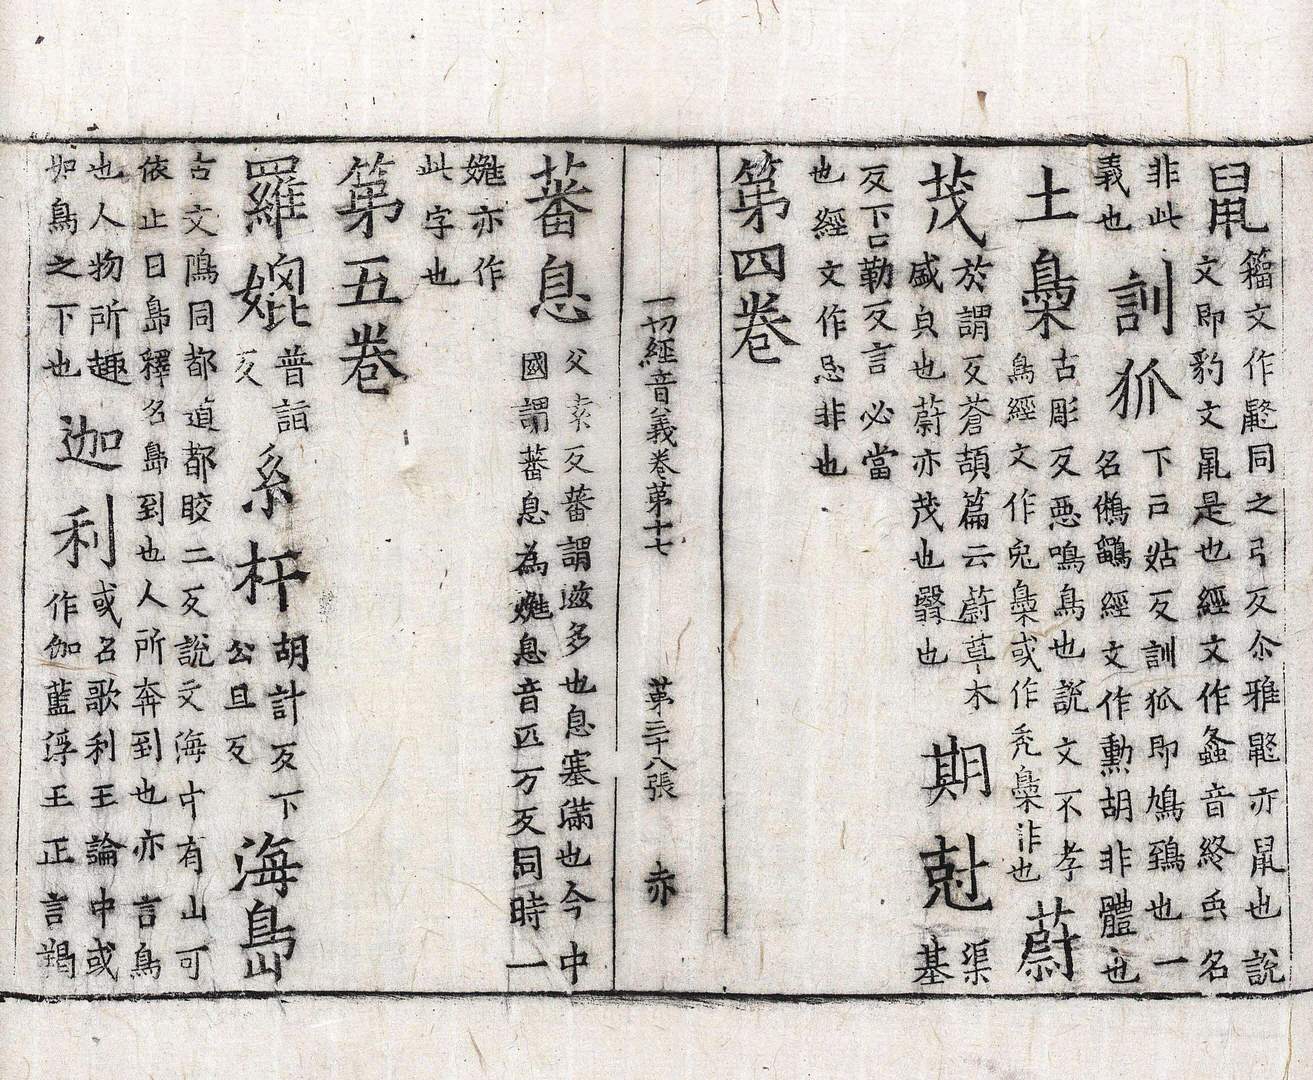 鼠籀文作鼨同之弓反尒雅鼨亦鼠也說
文即豹文鼠是也經文作螽音終虫名
非此
義也
訓狐下古姑反訓狐即鳩鵄也一
名鵂鶹經文作勳胡非體也
土梟古彫反惡鳴鳥也說文不孝
鳥經文作兔梟或作禿梟非也
蔚
茂於謂反蒼頡篇云蔚草木
盛皃也蔚亦茂也翳也
期尅渠
基
反下口勒反言必當
也經文作忌非也
第四卷
一切經音義卷第十七 第三十八張 赤
蕃息父袁反蕃謂滋多也息塞滿也今中
國謂蕃息為嬎息音匹万反同時一
嬎亦作
此字也
第五卷
羅娓普詣
反
系杆胡計反下
公旦反
海島
古文隝同都道都晈二反說文海中有山可
依止曰島釋名島到也人所奔到也亦言鳥
也人物所趣
如鳥之下也
迦利或名歌利王論中或
作伽藍浮王正言羯